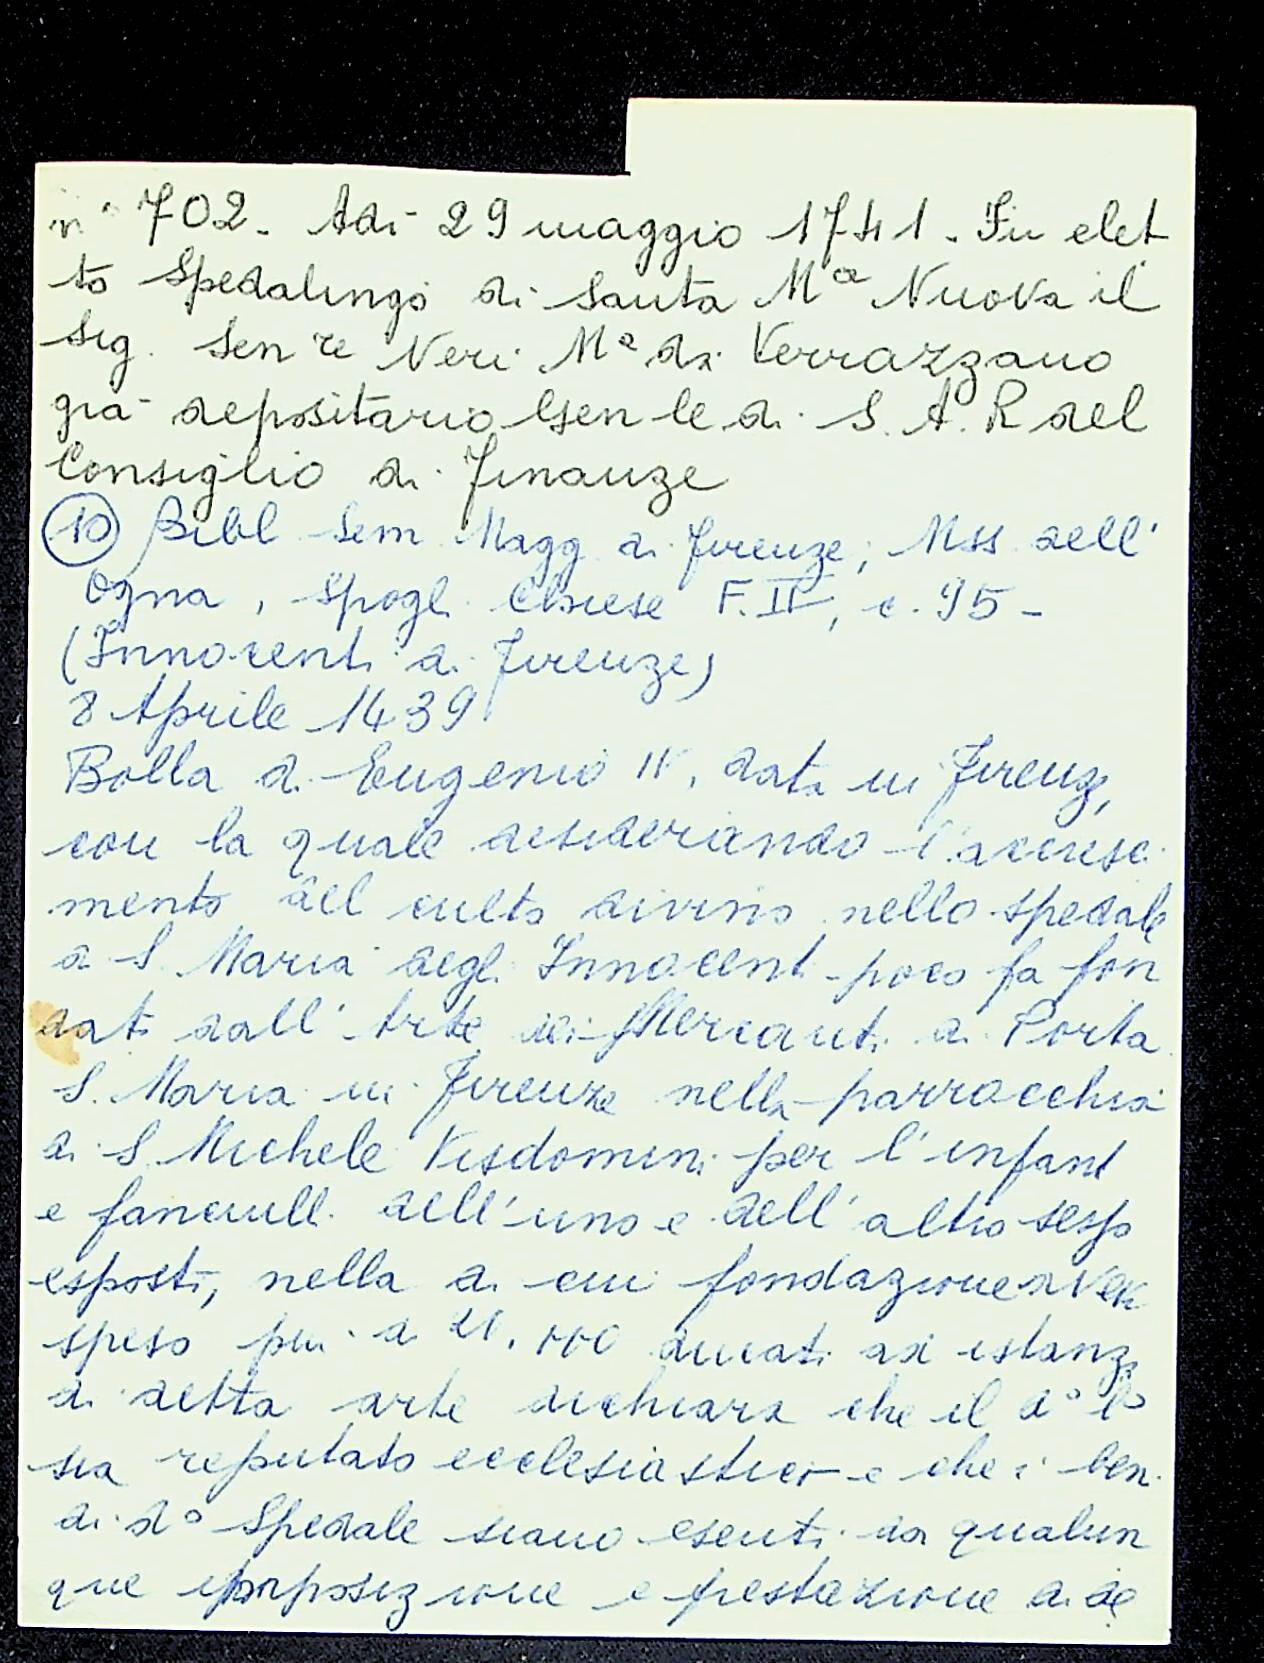 n° 702. Adi 29 maggio 1741. Fu elet
to Spedalingo di Santa Mª Nuova il
Sig. Sen re Neri Mª da Verrazzano
già depositario Gen le di S. A. R del
Consiglio di Finanze
(10) Bibl Sem Magg di Firenze, Mss dell'
Ogna, Spogl. Chiese F. IV, c. 95 -
(Innocenti di Firenze)
8 Aprile 1439
Bolla di Eugenio IV, data in Firenz,
con la quale desiderando l'accresci
mento del culto divino nello spedale
di S. Maria degli Innocenti poco fa fon
dati dall' Arte dei Mercanti di Porta
S. Maria in Firenze nella parrocchia
di S. Michele Visdomini per l'infanti
e fanciulli dell'uno e dell'altro sesso
esposti, nella di cui fondazione avea
speso più di ducati ad istanza
di detta arte dichiara che il d°
sia reputato ecclesiastico e che i beni
di d° Spedale siano esenti da qualun
que imposizione e prestazione di de